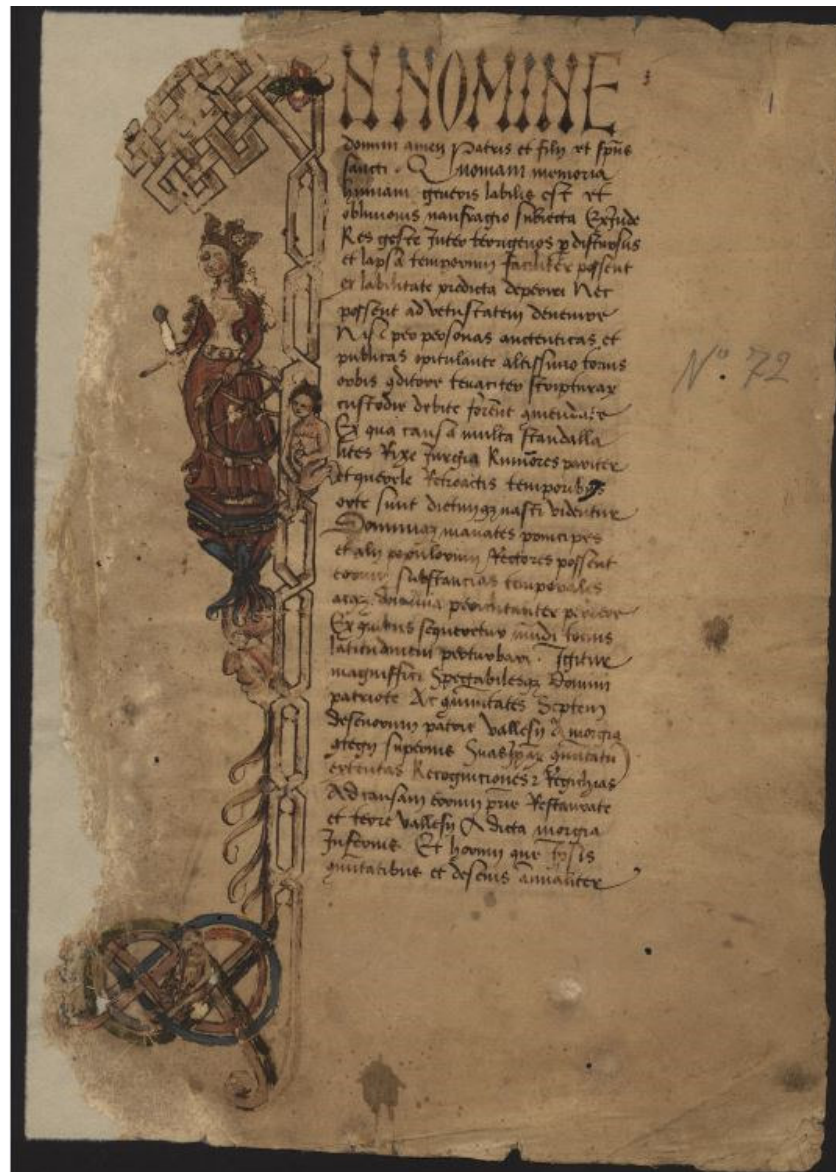 IN NOMINE
domini amen Patris et filij et spũs
sancti . Quoniam memoria
humani generis labilis est et
oblivionis naufragio subiecta Exinde
Res geste Inter terrigenos p discursus
et lapsa temporum faciliter possent
ex labilitate predicta deperiri Nec
possent ad vetustatem devenire
Nisi per personas auctenticas et
publicas opitulante altissimo tocius
orbis conditore tenaciter scripturar
custodie debite forent
Ex qua causa multa scandalla
lites Rixe Jurgia Rumores pariter
et querele Retroactis temporibus
orte sunt nasci videntur
principes
et alij populorum Rectores possent
eorum substancias temporales
Ex quibus sequeretur mundi tocius
latitudinem perturbari . Igitur
magniffici Spectabilesqz Domini
patriote Ac comitates Septem
desenorum patrie vallesij A morgia
contegij superius
extentas Recogniciones
Ad causam eorum Restaurate
et terre vallesij A dicta morgia
Inferius Et horum que Ipsis
comitatibus et desenis annualiter
Nº. 72
1